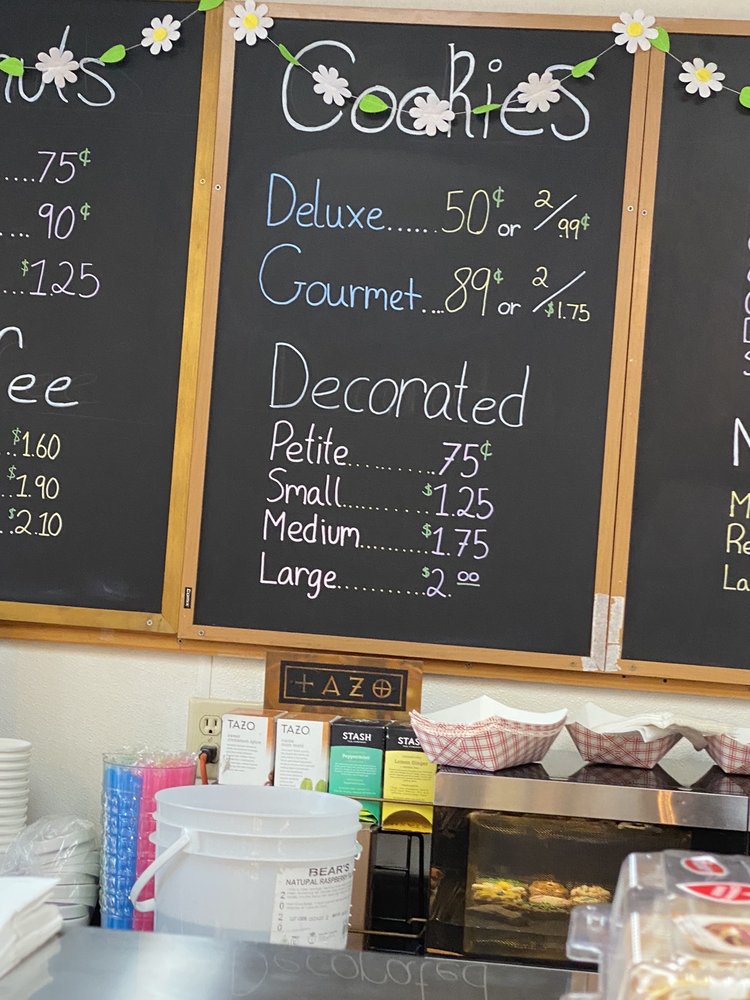 75¢
90¢
$1.25
ee
$1.60
$1.90
$2.10
Cookies
Deluxe......50¢ or 2/.99¢
Gourmet...89¢ or 2/$1.75
Decorated
Petite..........75¢
Small..........$1.25
Medium..........$1.75
Large..........$2.00
TAZO
TAZO
TAZO
STASH
Peppermint
STASH
Lemon Ginger
BEAR'S
NATURAL RASPBERRY
Decorated